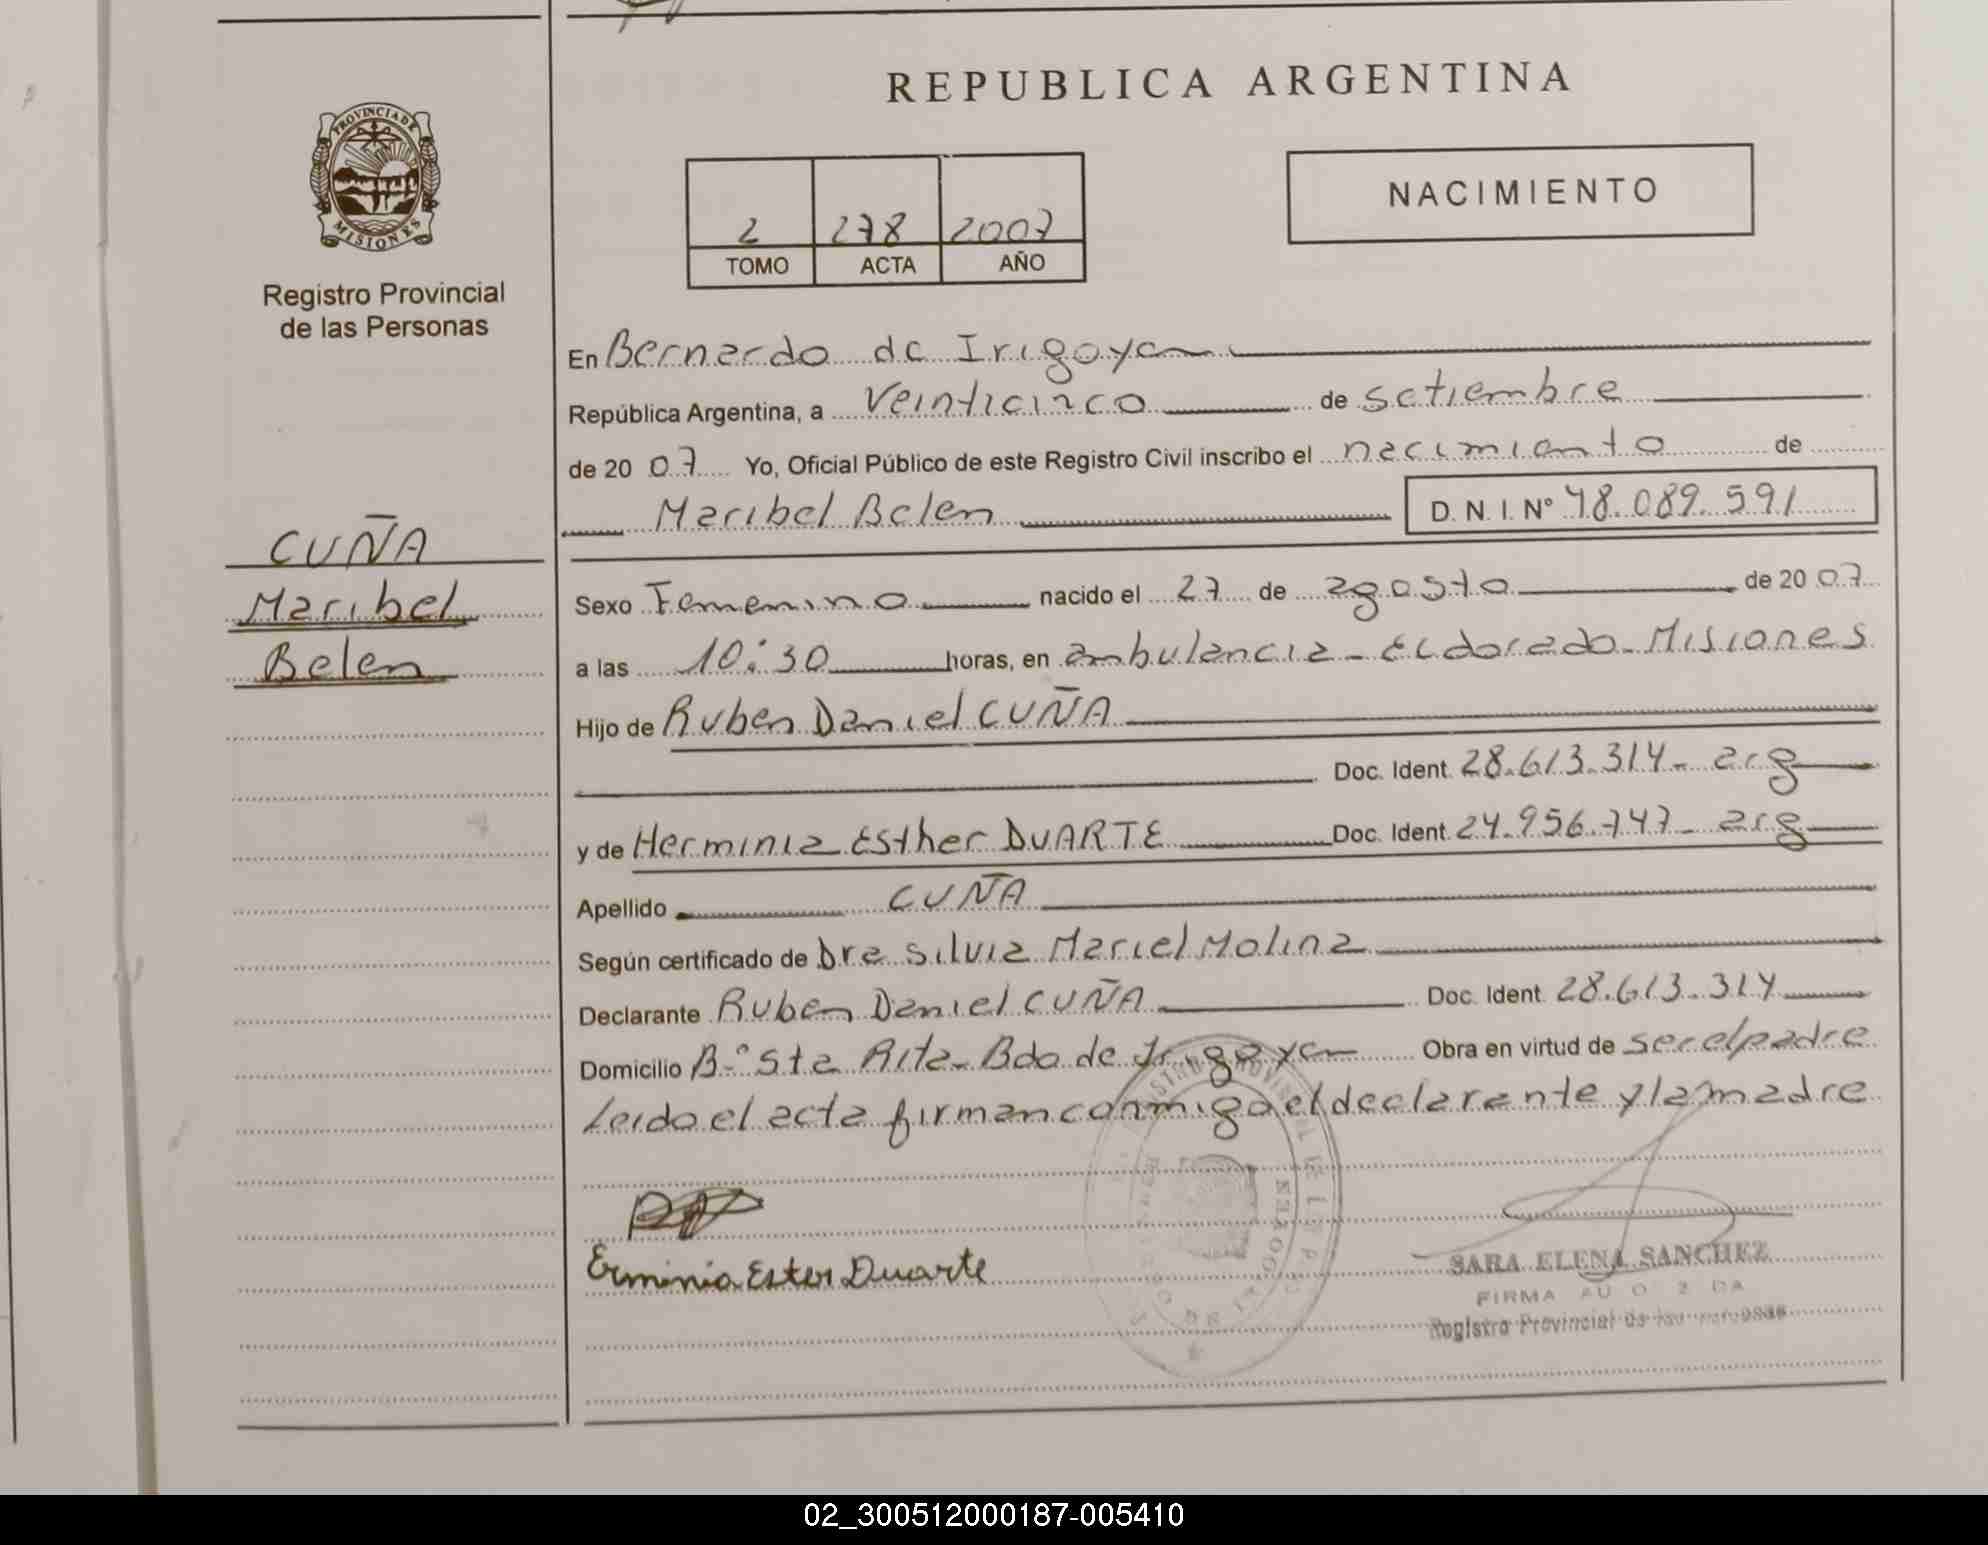 REPUBLICA ARGENTINA
PROVINCIA DE
MISIONES
Registro Provincial
de las Personas
NACIMIENTO
2 278 2007
TOMO ACTA AÑO
CUÑA
Maribel
Belen
En Bernardo de Irigoyen
República Argentina, a Veinticinco de setiembre
de 2007 Yo, Oficial Público de este Registro Civil inscribo el nacimiento de
Maribel Belen D. N. I. Nº 48.089.591
Sexo Femenino nacido el 27 de agosto de 2007
a las 10:30 horas, en ambulancia - Eldorado - Misiones
Hijo de Ruben Daniel CUÑA
Doc. Ident. 28.613.314 - arg
y de Herminia Esther DUARTE Doc. Ident. 24.956.747 - arg
Apellido CUÑA
Según certificado de Dra Silvia Mariel Molina
Declarante Ruben Daniel CUÑA Doc. Ident. 28.613.314
Domicilio Bº Sta Rita - Bdo de Irigoyen Obra en virtud de ser el padre
Leido el acta firman conmigo el declarante y la madre
Erminia Ester Duarte
SARA ELENA SANCHEZ
FIRMA
Registro Provincial de las
02_300512000187-005410